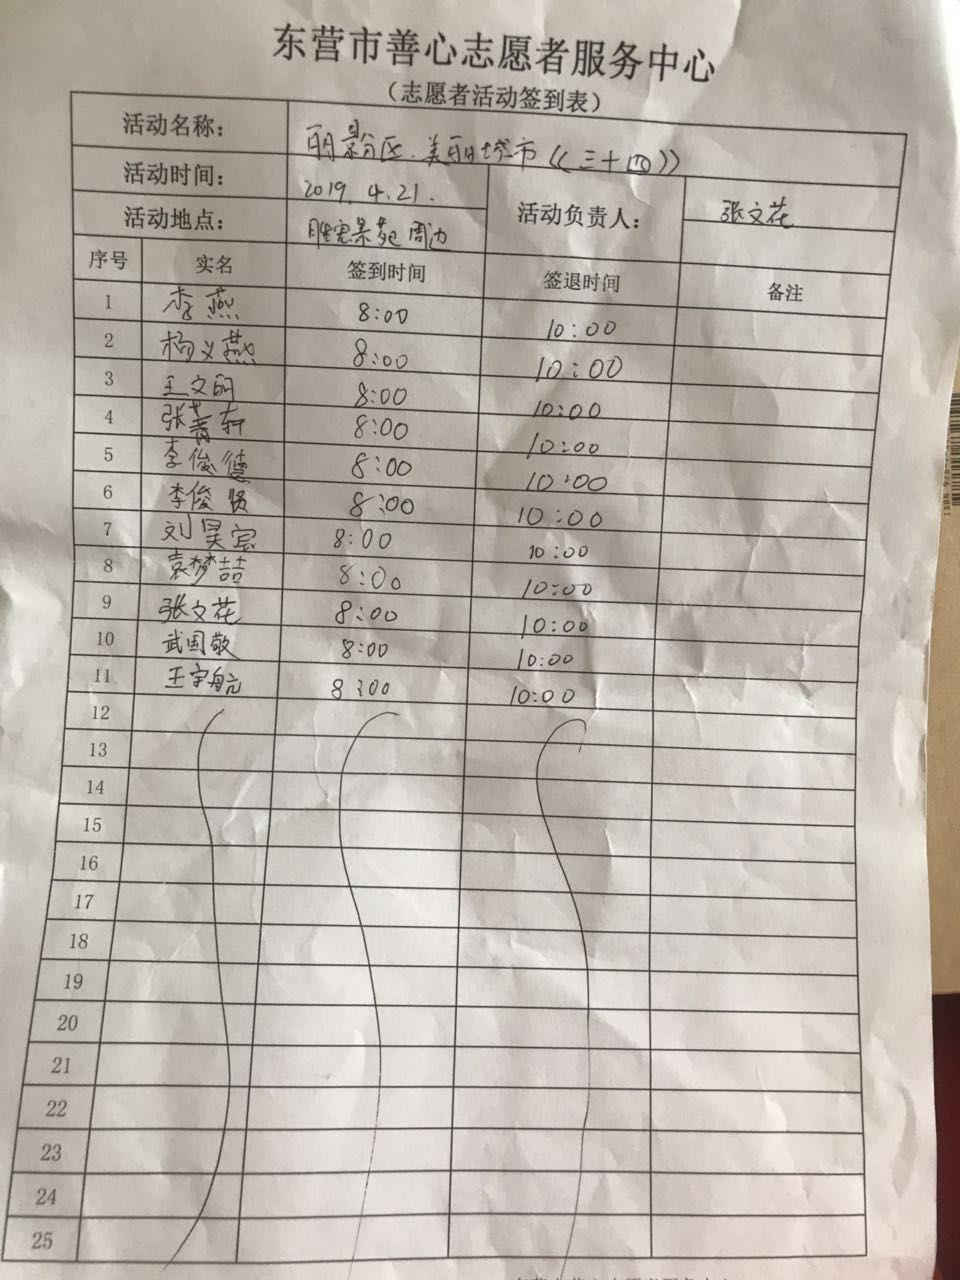 东营市善心志愿者服务中心
（志愿者活动签到表）
活动名称： 丽景分区.美丽城市《三十四》
活动时间： 2019.4.21. 活动负责人： 张文花
活动地点： 胜宏景苑周边
序号 实名 签到时间 签退时间 备注
1 李燕 8:00 10:00
2 杨义燕 8:00 10:00
3 王文丽 8:00 10:00
4 张菁轩 8:00 10:00
5 李俊德 8:00 10:00
6 李俊贤 8:00 10:00
7 刘昊宸 8:00 10:00
8 袁梦喆 8:00 10:00
9 张文花 8:00 10:00
10 武国敬 8:00 10:00
11 王宇航 8:00 10:00
12
13
14
15
16
17
18
19
20
21
22
23
24
25